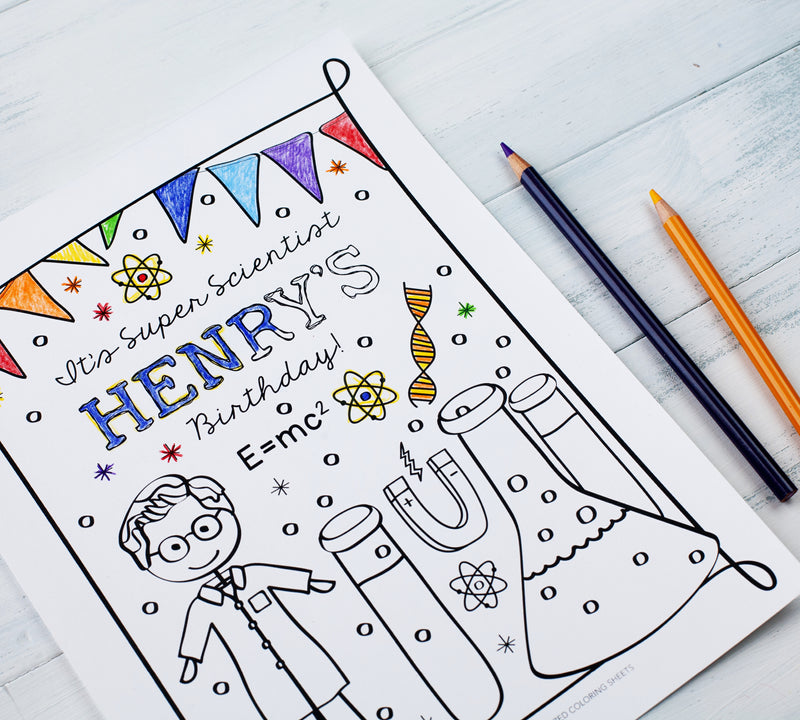 It's Super Scientist
HENRY'S
Birthday!
E=mc²
COLORING SHEETS